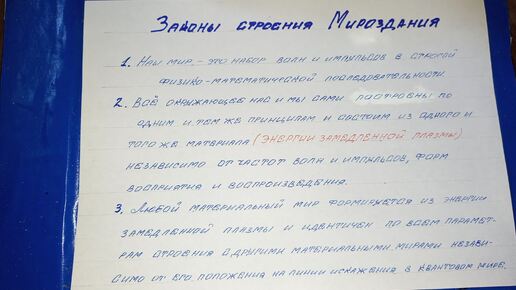 Законы строения Мироздания
1. Наш мир - это набор волн и импульсов в строгой
физико-математической последовательности
2. Всё окружающее нас и мы сами построены по
одним и тем же принципам и состоим из одного и
того же материала (энергии замедленной плазмы)
независимо от частот волн и импульсов, форм
восприятия и воспроизведения.
3. Любой материальный мир формируется из энергии
замедленной плазмы и идентичен по всем парамет-
рам строения с другими материальными мирами незави-
симо от его положения на линии искажения в квантовом мире.